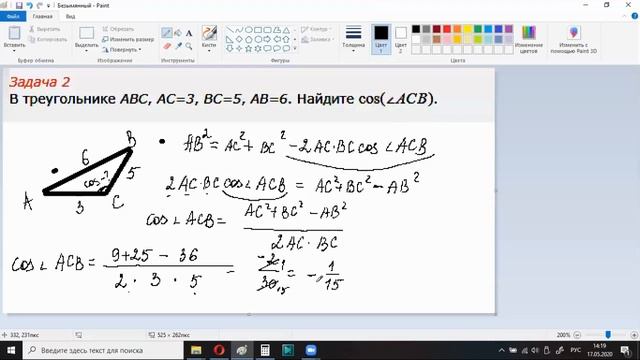 Безымянный - Paint
Файл Главная Вид
Вставить Выделить Обрезать Изменить размер Повернуть Кисти Контур Заливка Толщина Цвет 1 Цвет 2 Изменение цветов Изменить с помощью Paint 3D
Буфер обмена Изображение Инструменты Фигуры Цвета
Задача 2
В треугольнике ABC, AC=3, BC=5, AB=6. Найдите cos(∠ACB).
AB² = AC² + BC² - 2AC·BC cos∠ACB
B
6
cos-?
5
A
3
C
2AC·BC cos∠ACB = AC² + BC² - AB²
cos∠ACB = AC² + BC² - AB² / 2AC·BC
cos∠ACB = 9+25-36 / 2·3·5 = -2 1 / 30 15 = -1/15
332, 231пкс 525 × 262пкс 200%
Введите здесь текст для поиска РУС 14:19
17.05.2020